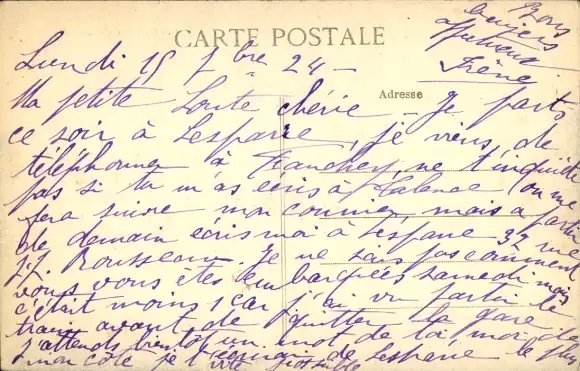 CARTE POSTALE
Adresse
Lundi 15 7bre 24 –
Ma petite Loute chérie – Je parts
ce soir à Lesparre, je viens de
téléphoner à ne t'inquiète
pas si tu m'as écris à Talence (on me
fera suivre mon courrier, mais à partir
de demain écris moi à Lesparre 32 rue
J.J. Rousseau. Je ne sais pas comment
vous vous êtes embarquées samedi mais
c'était moins 1 car j'ai vu partir le
train avant de quitter la gare.
J'attends bientôt un mot de toi, moi de
mon côté je t'écrirai de Lesparre le plus
vite possible
Bons
baisers
affectueux
Irène